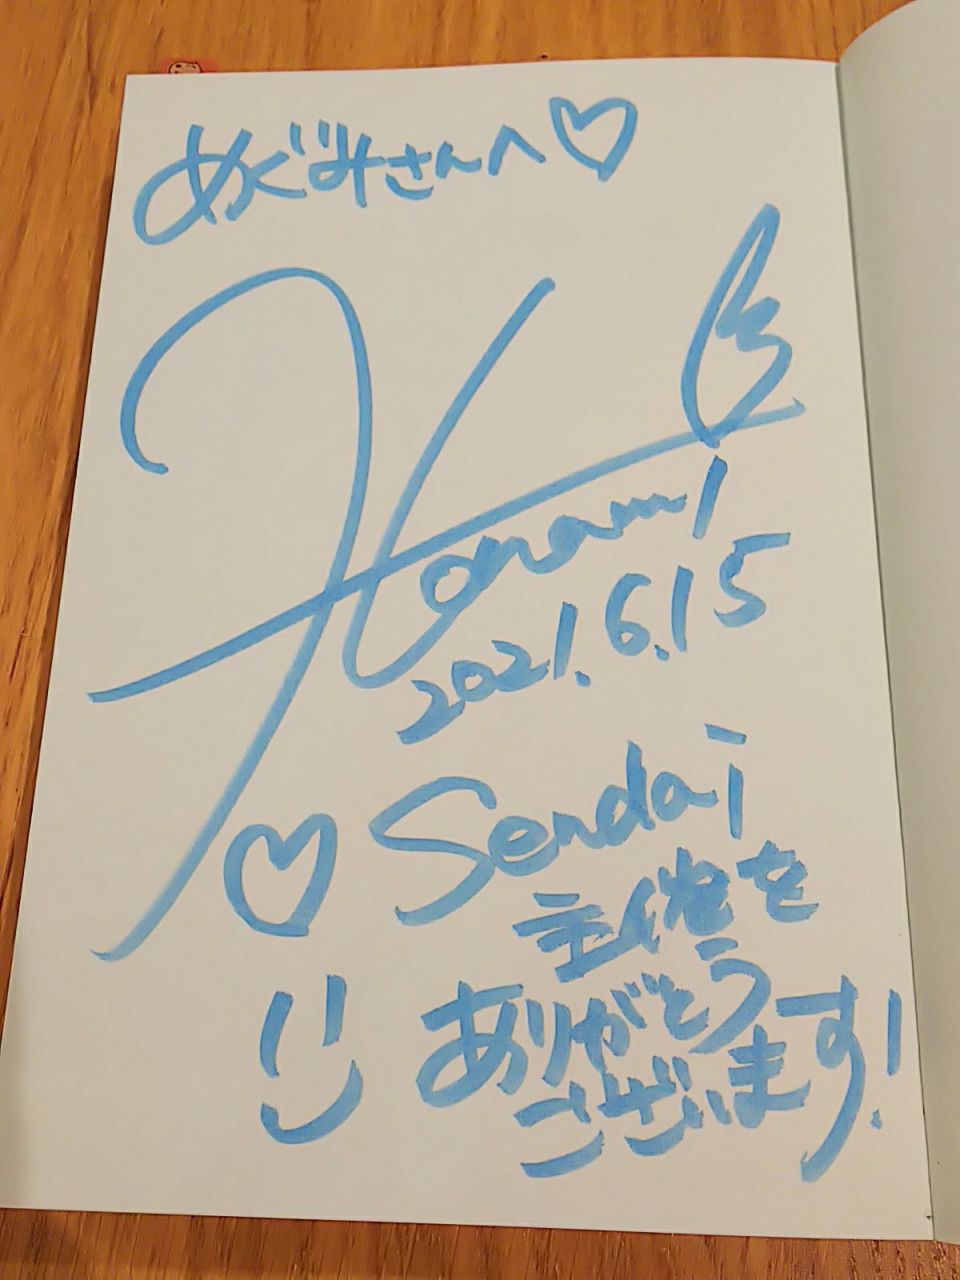 めぐみさんへ♡
Honami
2021.6.15
♡ Sendai
主催を
ありがとう
ございます!